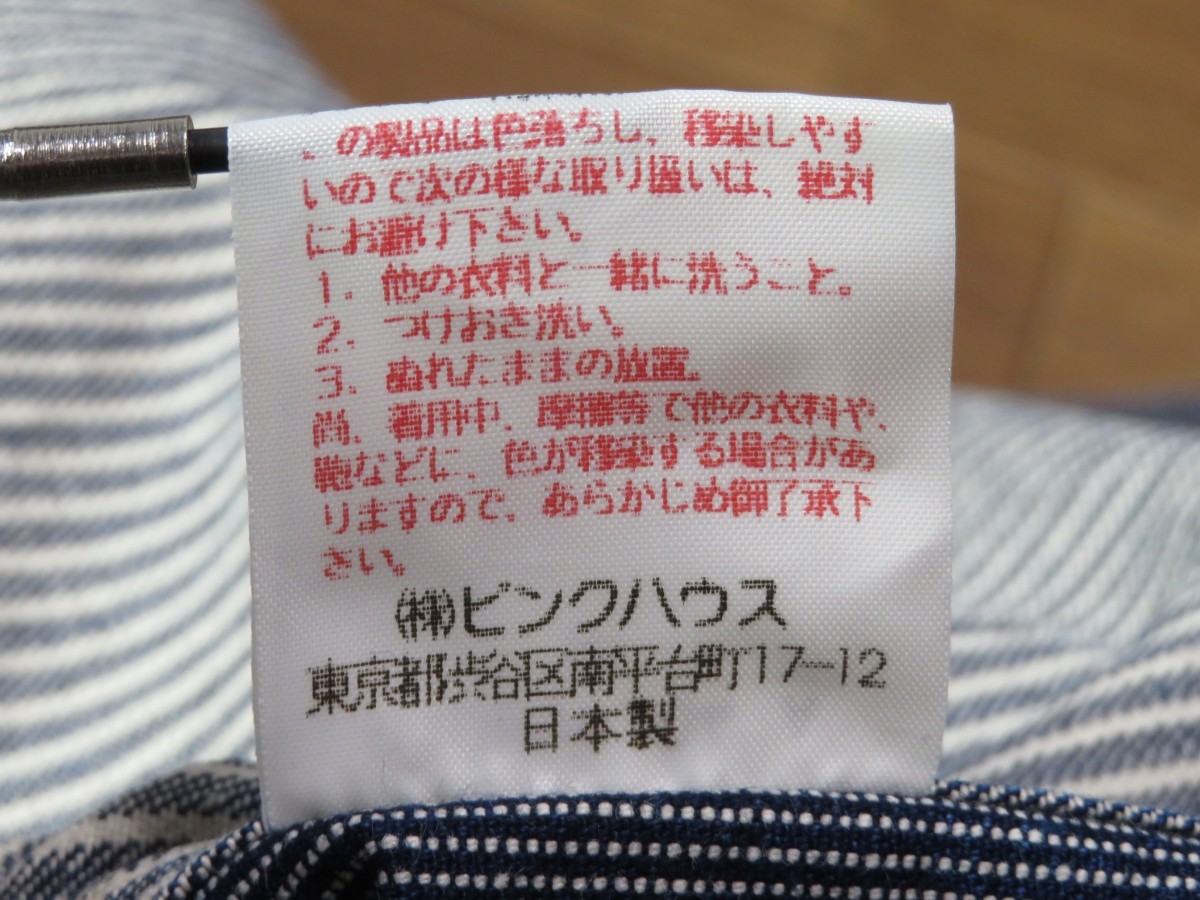 の製品は色落ちし、移染しやす
いので次の様な取り扱いは、絶対
にお避け下さい。
1. 他の衣料と一緒に洗うこと。
2. つけおき洗い。
3. ぬれたままの放置。
尚、着用中、摩擦等で他の衣料や、
鞄などに、色が移染する場合があ
りますので、あらかじめ御了承下
さい。
㈱ピンクハウス
東京都渋谷区南平台町17-12
日本製